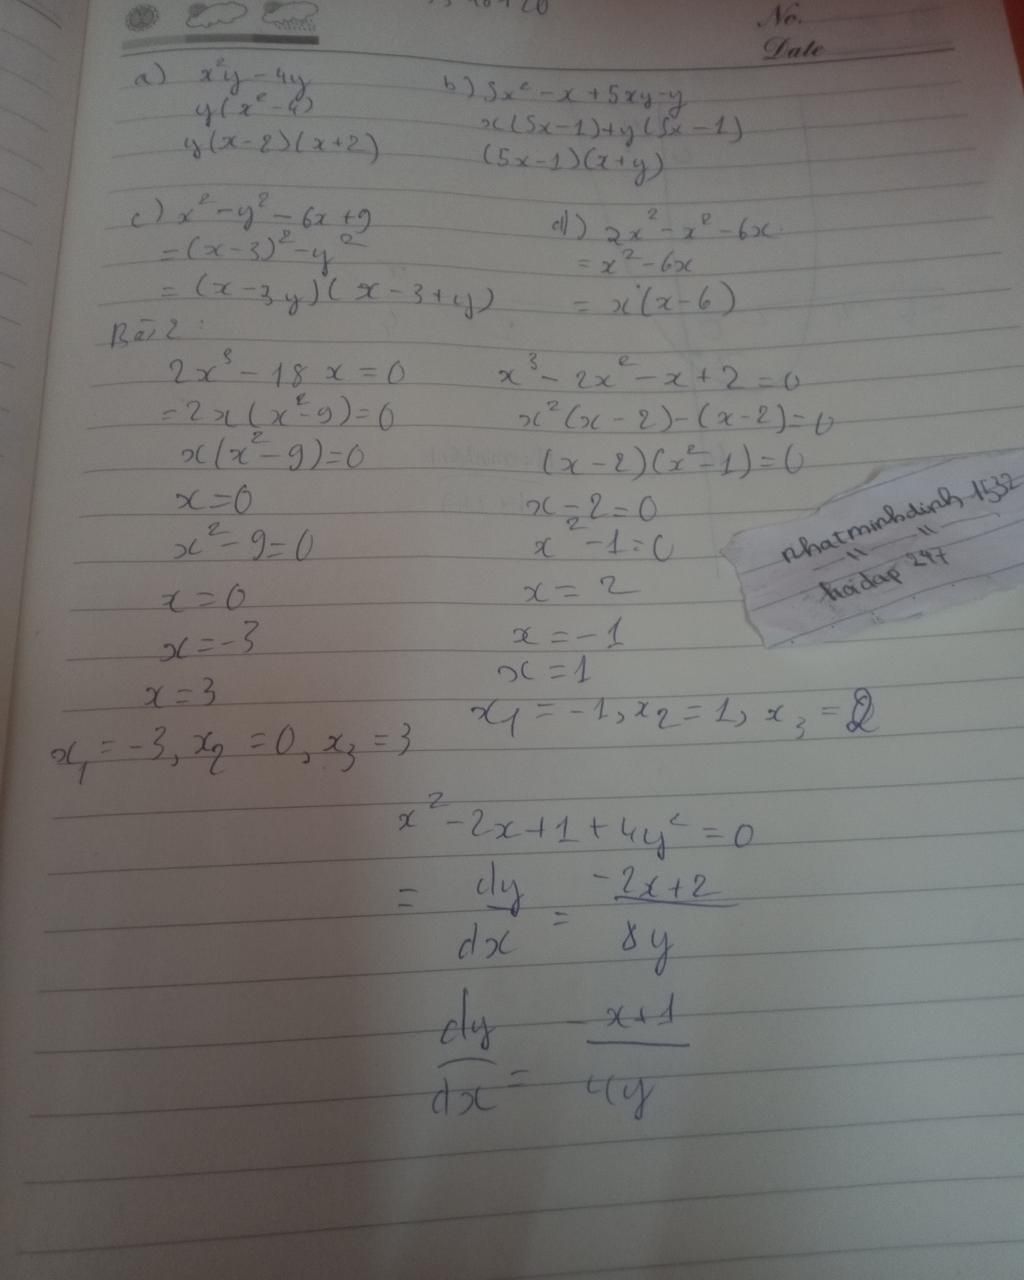 No.
Date
a) x²y - 4y
y(x² - 4)
y(x-2)(x+2)
b) 5x² - x + 5xy - y
x(5x-1)+y(5x-1)
(5x-1)(x+y)
c) x² - y² - 6x + 9
= (x-3)² - y²
= (x-3y)(x-3+y)
d) 2x² - x² - 6x
= x² - 6x
= x(x-6)
Bài 2:
2x³ - 18x = 0
= 2x(x² - 9) = 0
x(x² - 9) = 0
x = 0
x² - 9 = 0
x = 0
x = -3
x = 3
x₁ = -3, x₂ = 0, x₃ = 3
x³ - 2x² - x + 2 = 0
x²(x - 2) - (x - 2) = 0
(x - 2)(x² - 1) = 0
x - 2 = 0
x² - 1 = 0
x = 2
x = -1
x = 1
x₁ = -1, x₂ = 1, x₃ = 2
nhatminhdinh 1532
" — "
hoidap 247
x² - 2x + 1 + 4y² = 0
= dy/dx = -2x+2/8y
dy/dx = - x+1/4y